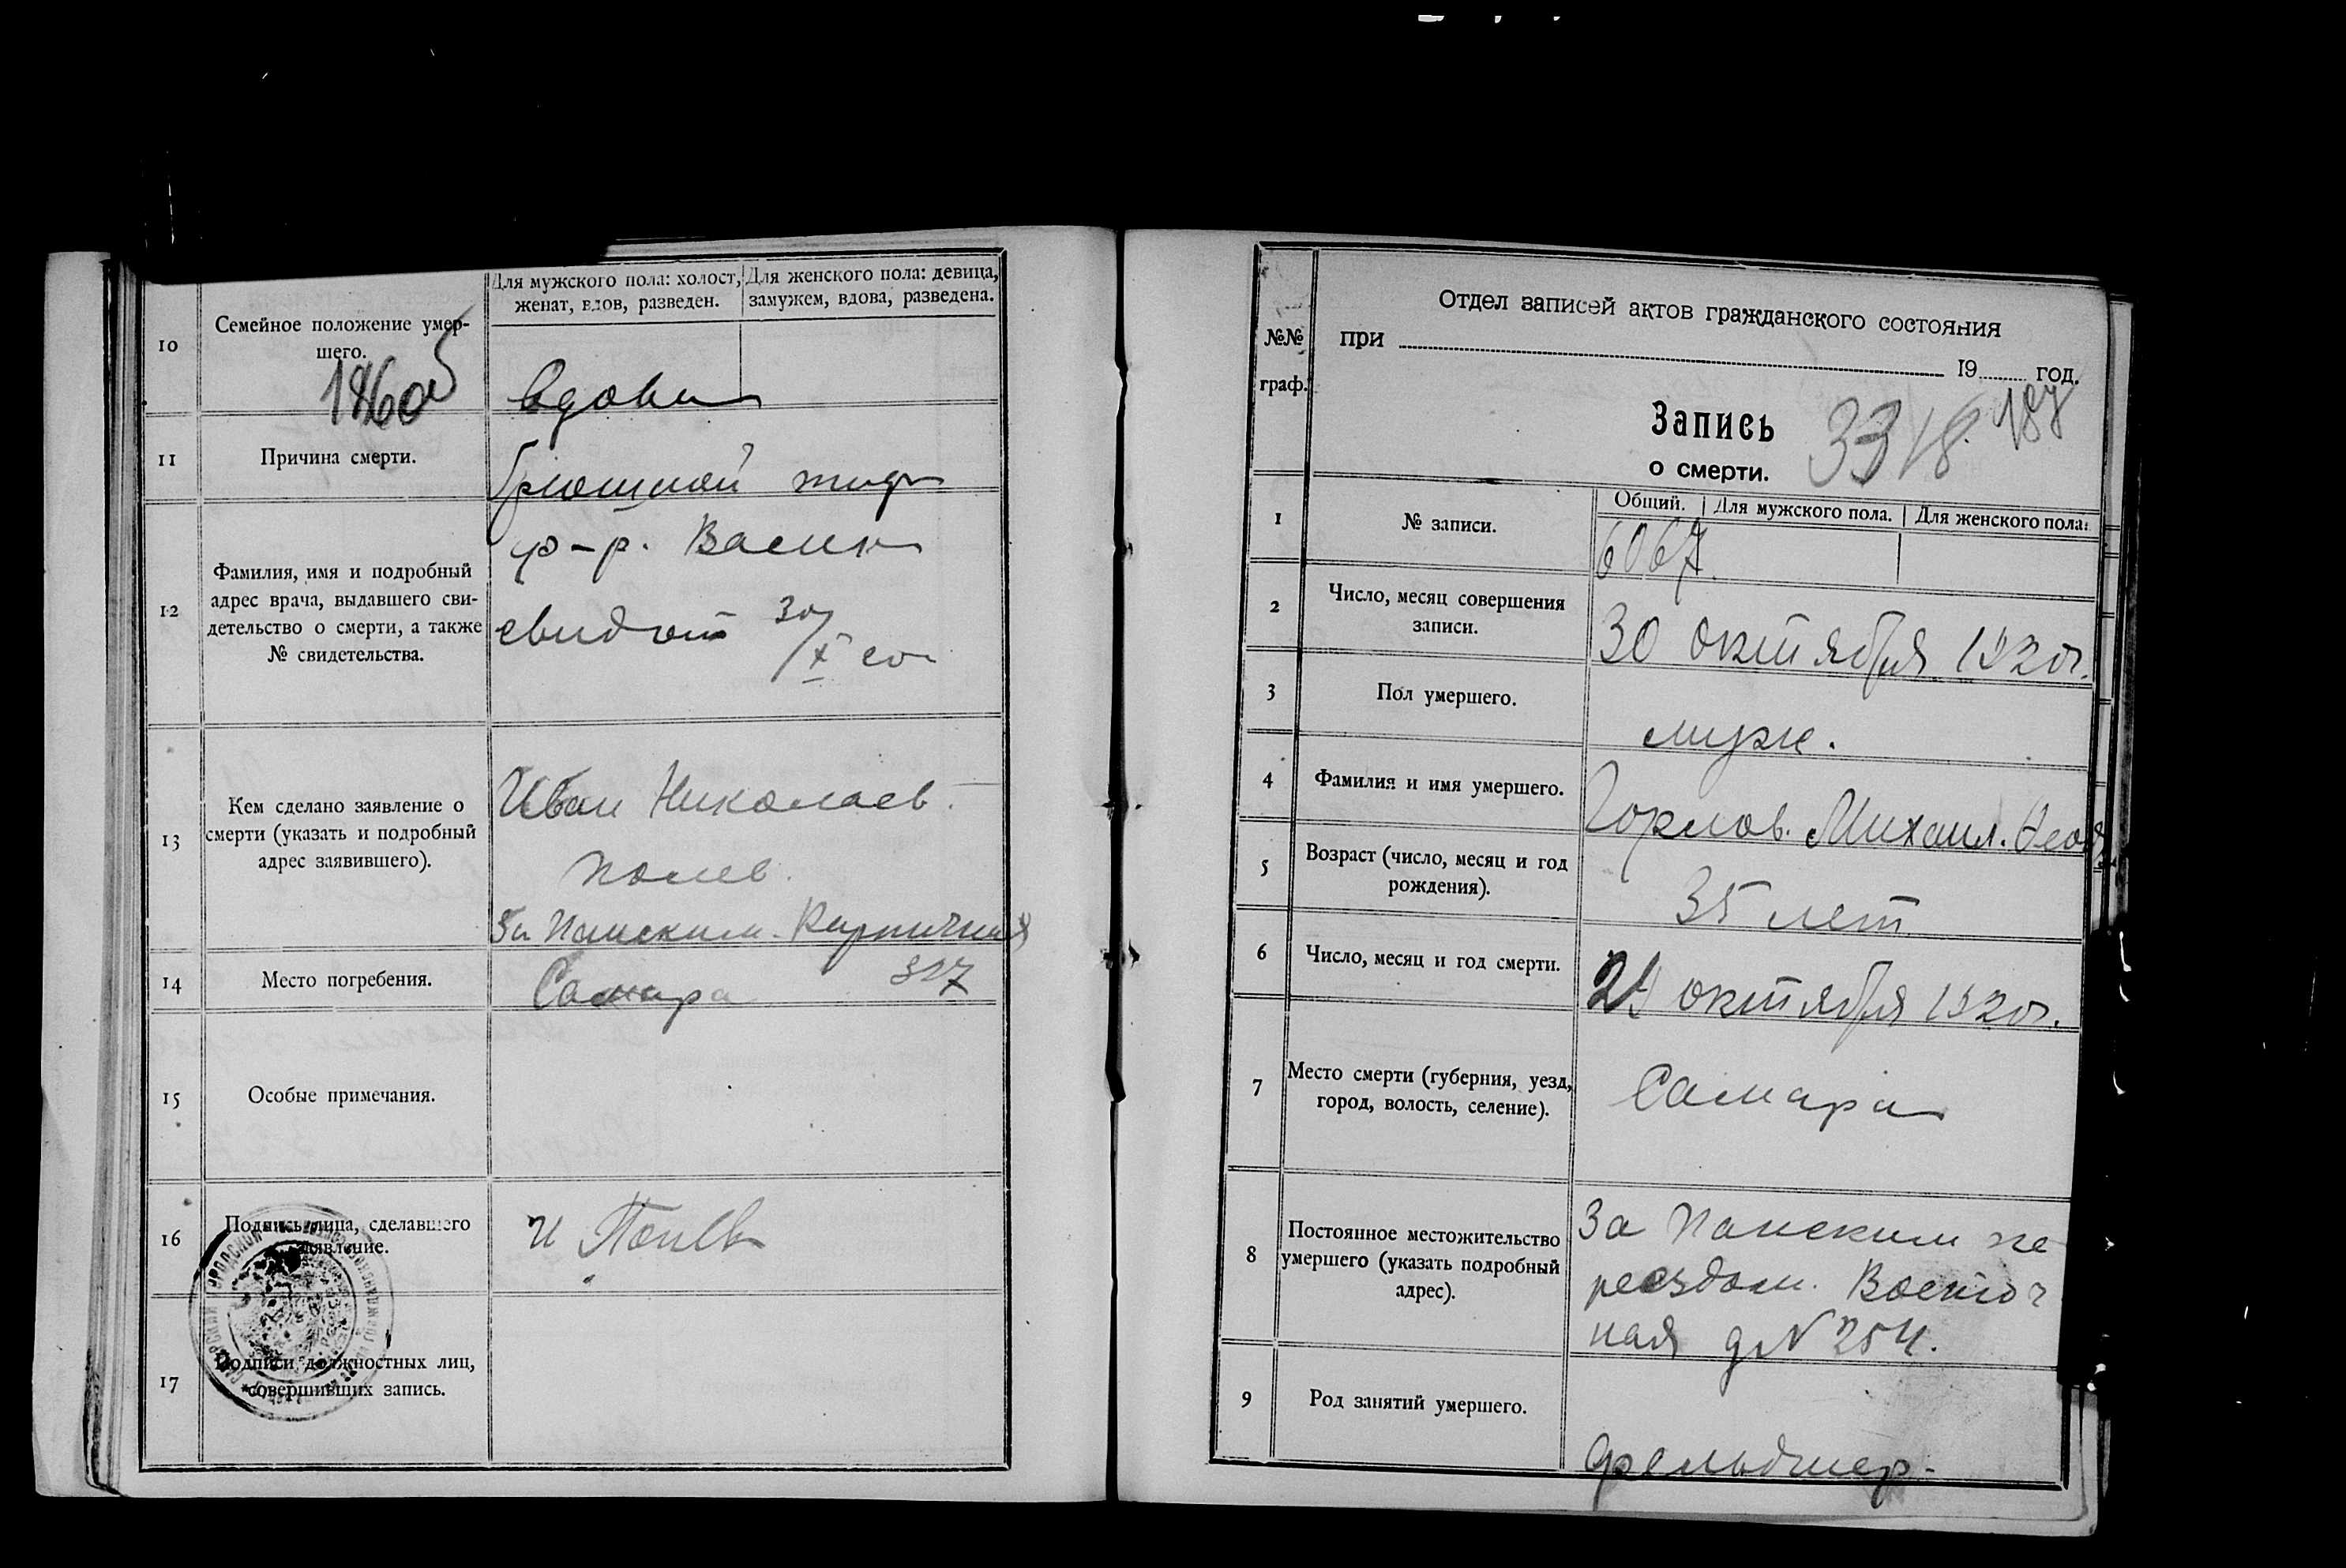 10
Семейное положение умер-
шего.
Для мужского пола: холост,
женат, вдов, разведен.
Для женского пола: девица,
замужем, вдова, разведена.
11
Причина смерти.
брюшной тиф
12
Фамилия, имя и подробный
адрес врача, выдавшего сви-
детельство о смерти, а также
№ свидетельства.
ф-р.
30/X
13
Кем сделано заявление о
смерти (указать и подробный
адрес заявившего).
Иван Николаев.
За Панским. Кирпичная
317
14
Место погребения.
Самара
15
Особые примечания.
16
Подпись лица, сделавшего
заявление.
И
17
Подписи должностных лиц,
совершивших запись.
№№
граф.
Отдел записей актов гражданского состояния
при 19 год.
Запись
о смерти.
3318
187
1
№ записи.
Общий. Для мужского пола. Для женского пола.
6067.
2
Число, месяц совершения
записи.
30 октября 1920г.
3
Пол умершего.
муж.
4
Фамилия и имя умершего.
Горлов. Михаил.
5
Возраст (число, месяц и год
рождения).
35 лет
6
Число, месяц и год смерти.
29 октября 1920г.
7
Место смерти (губерния, уезд,
город, волость, селение).
Самара
8
Постоянное местожительство
умершего (указать подробный
адрес).
За Панским пе
реездом. Восточ
ная д N 254.
9
Род занятий умершего.
фельдшер.